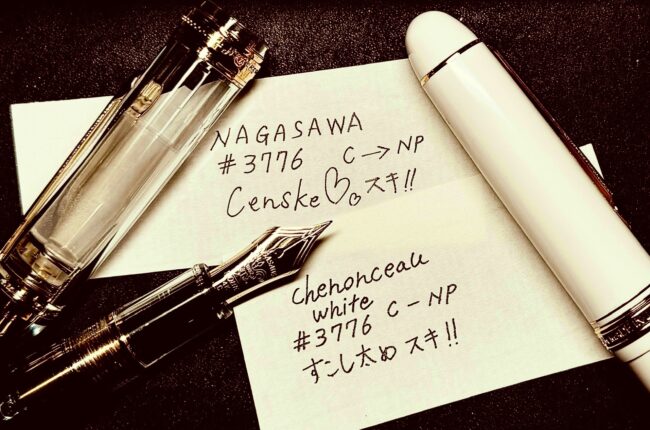 NAGASAWA
#3776 C→NP
Censke♡♡スキ!!
Chenonceau
white
#3776 C-NP
すこし太めスキ!!